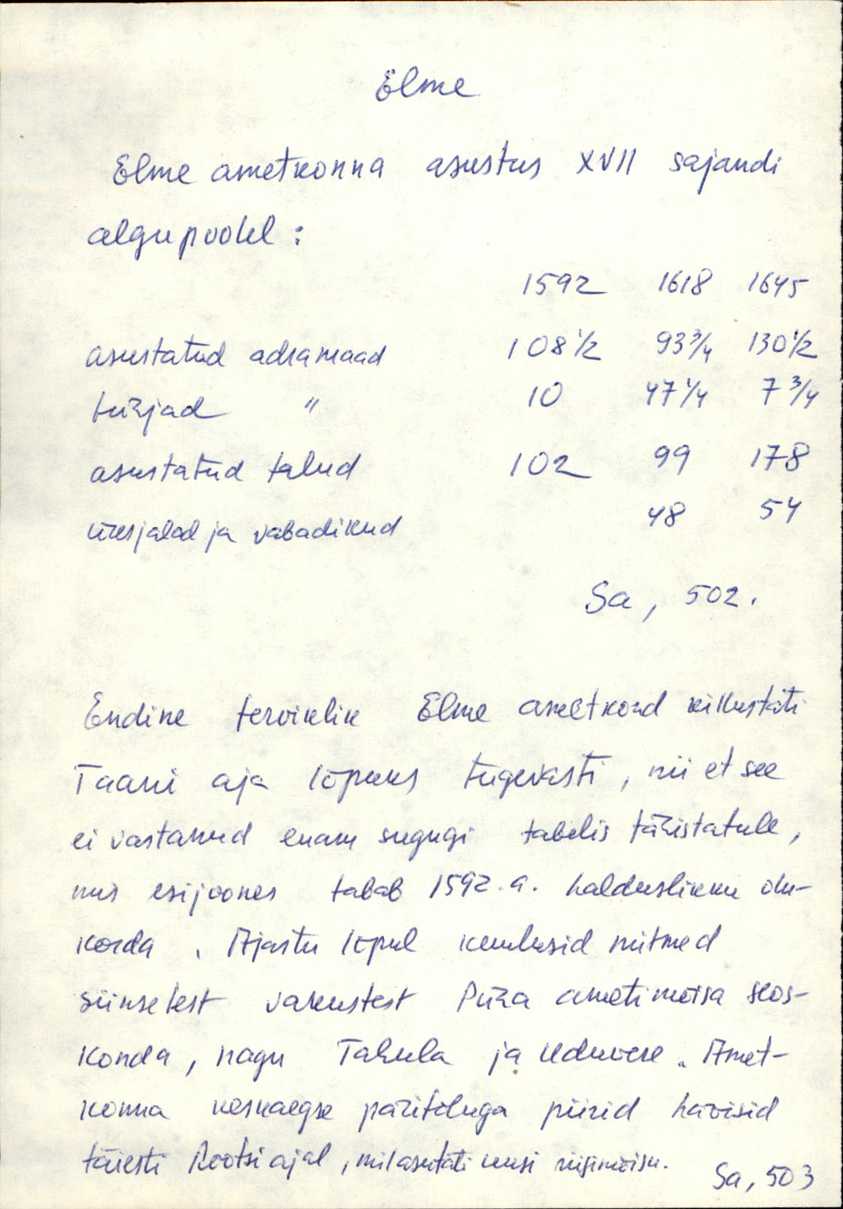 Elme
Elme ametkonna asustus XVII sajandi
algupoolel :
1592 1618 1645
asustatud adramaad 108 1/2 93 3/4 130 1/2
tühjad " 10 47 1/4 7 3/4
asustatud talud 102 99 178
üksjalad ja vabadikud 48 54
Sa, 502.
Endine terviklik Elme ametkond killustati
Taani aja lõpuks tugevasti, nii et see
ei vastanud enam sugugi tabelis tähistatule,
mis esijoones tabab 1592.a. halduslikku olu-
korda. Ajastu lõpul kuulusid mitmed
siinsetest vakustest Püha ametimõisa seos-
konda, nagu Tahula ja Uduvere. Amet-
konna keskaegse päritoluga piirid hävisid
täiesti Rootsi ajal, mil asutati uusi riigimõisu.
Sa, 503